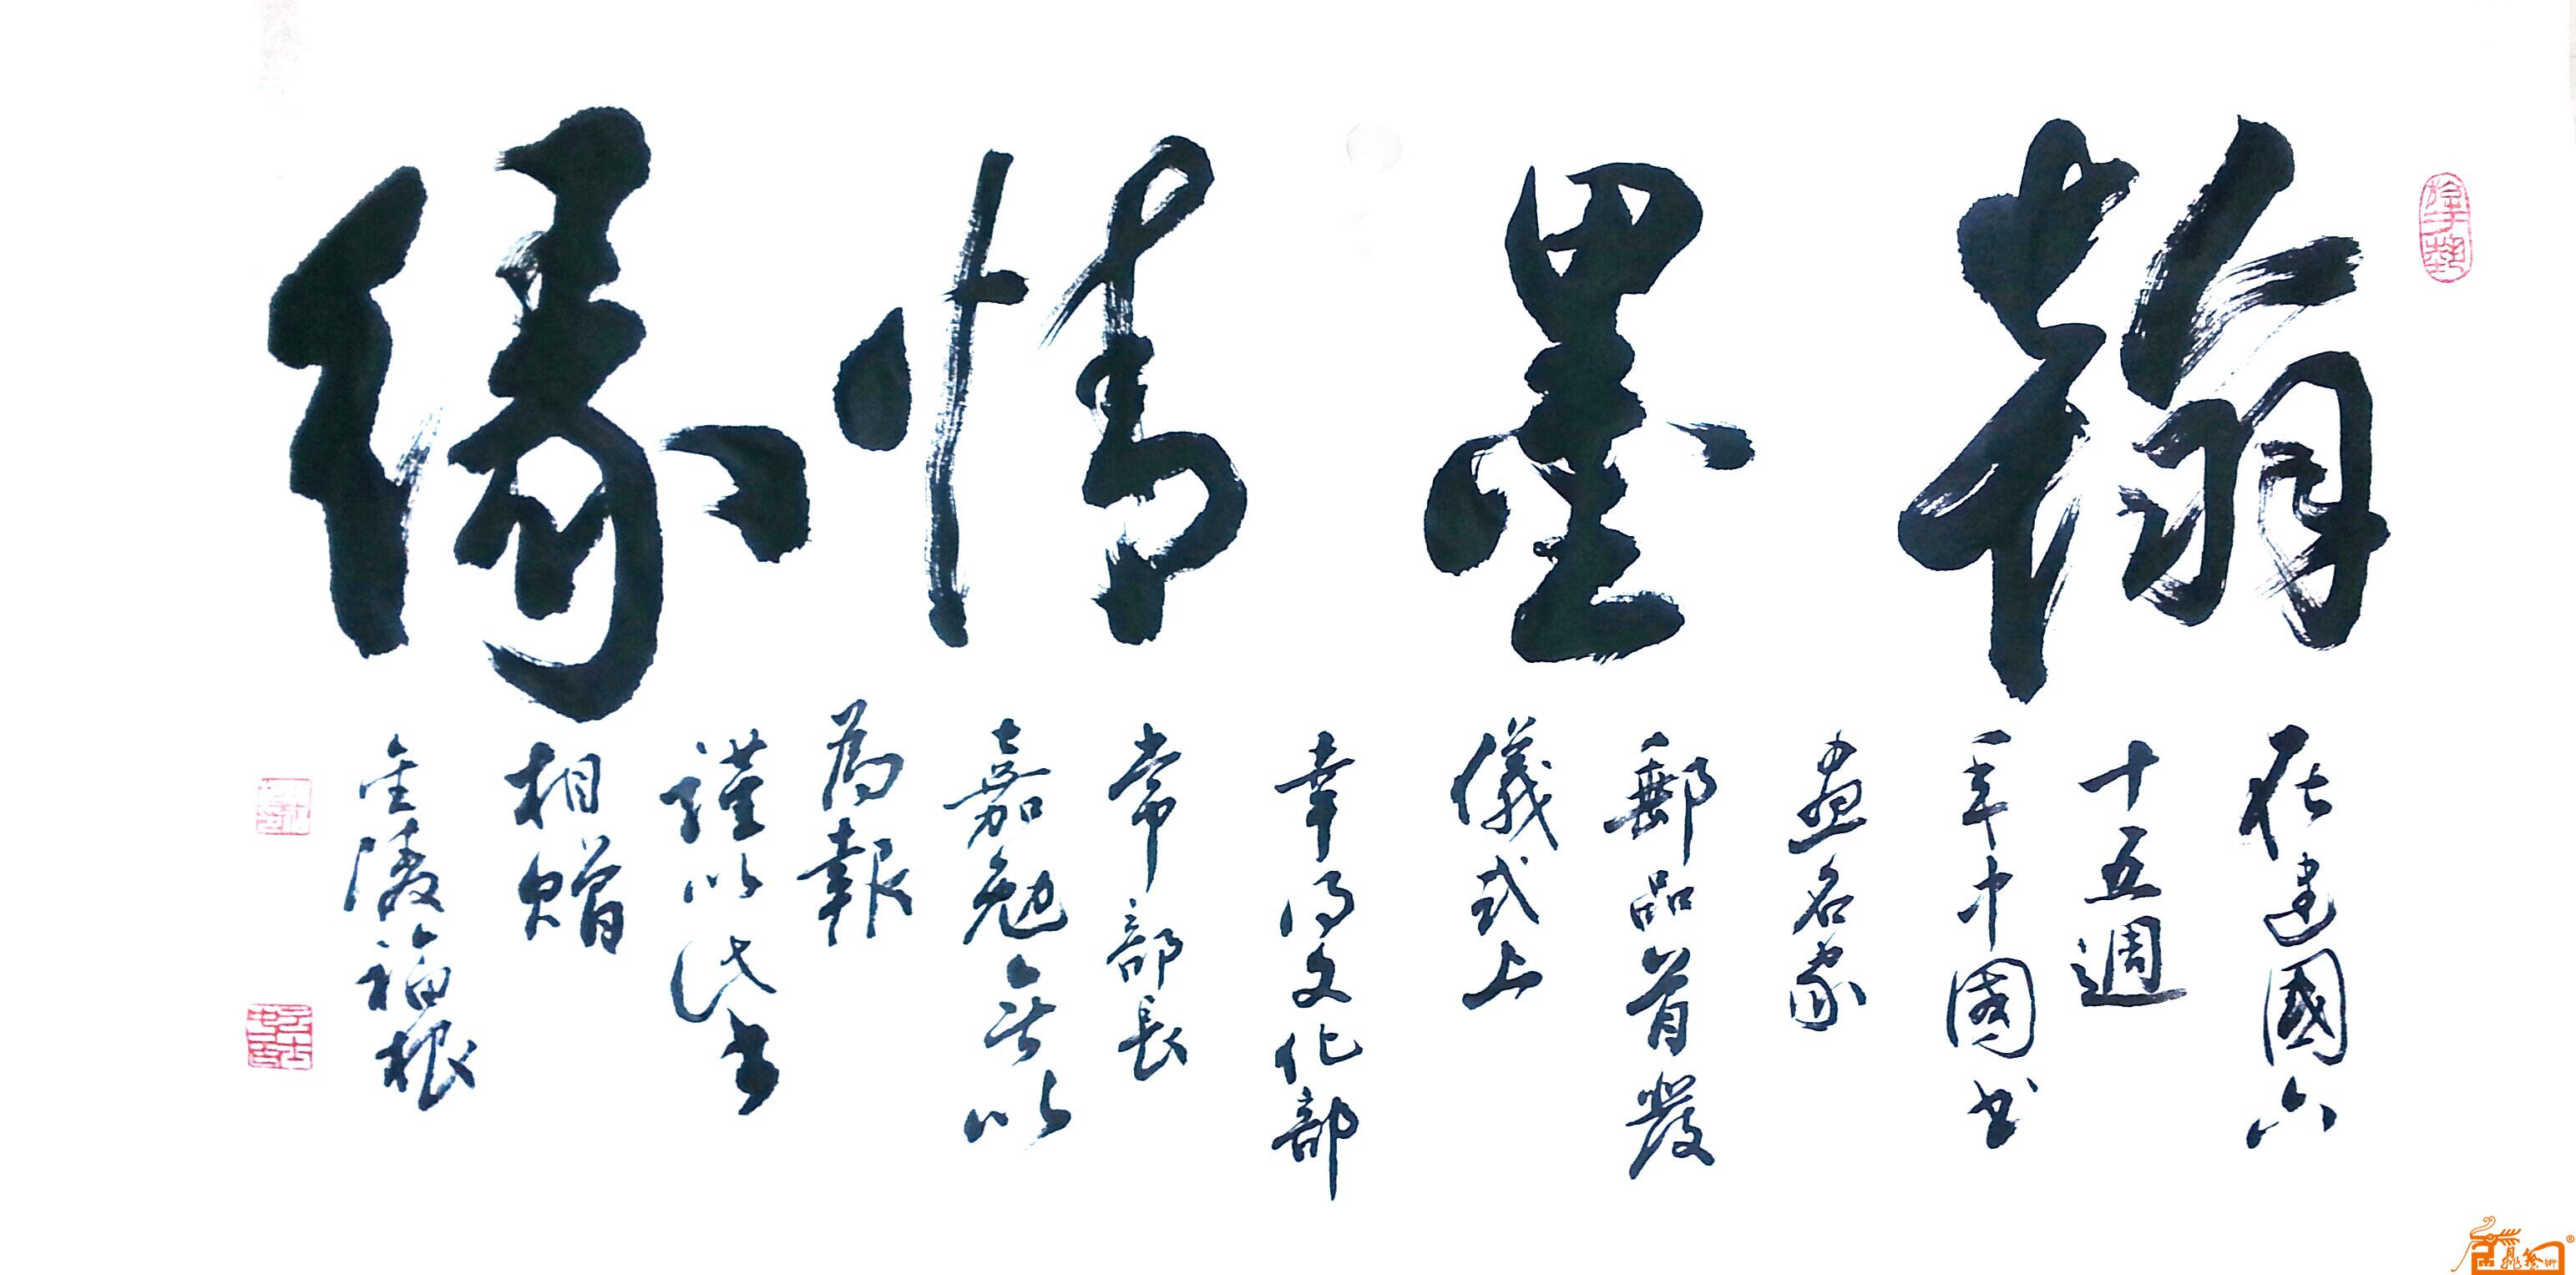 翰墨情緣
在建國六
十五週
年中國书
畫名家
郵品首發
儀式上
幸得文化部
常部長
嘉勉無以
為報
謹以此書
相贈
金陵福根